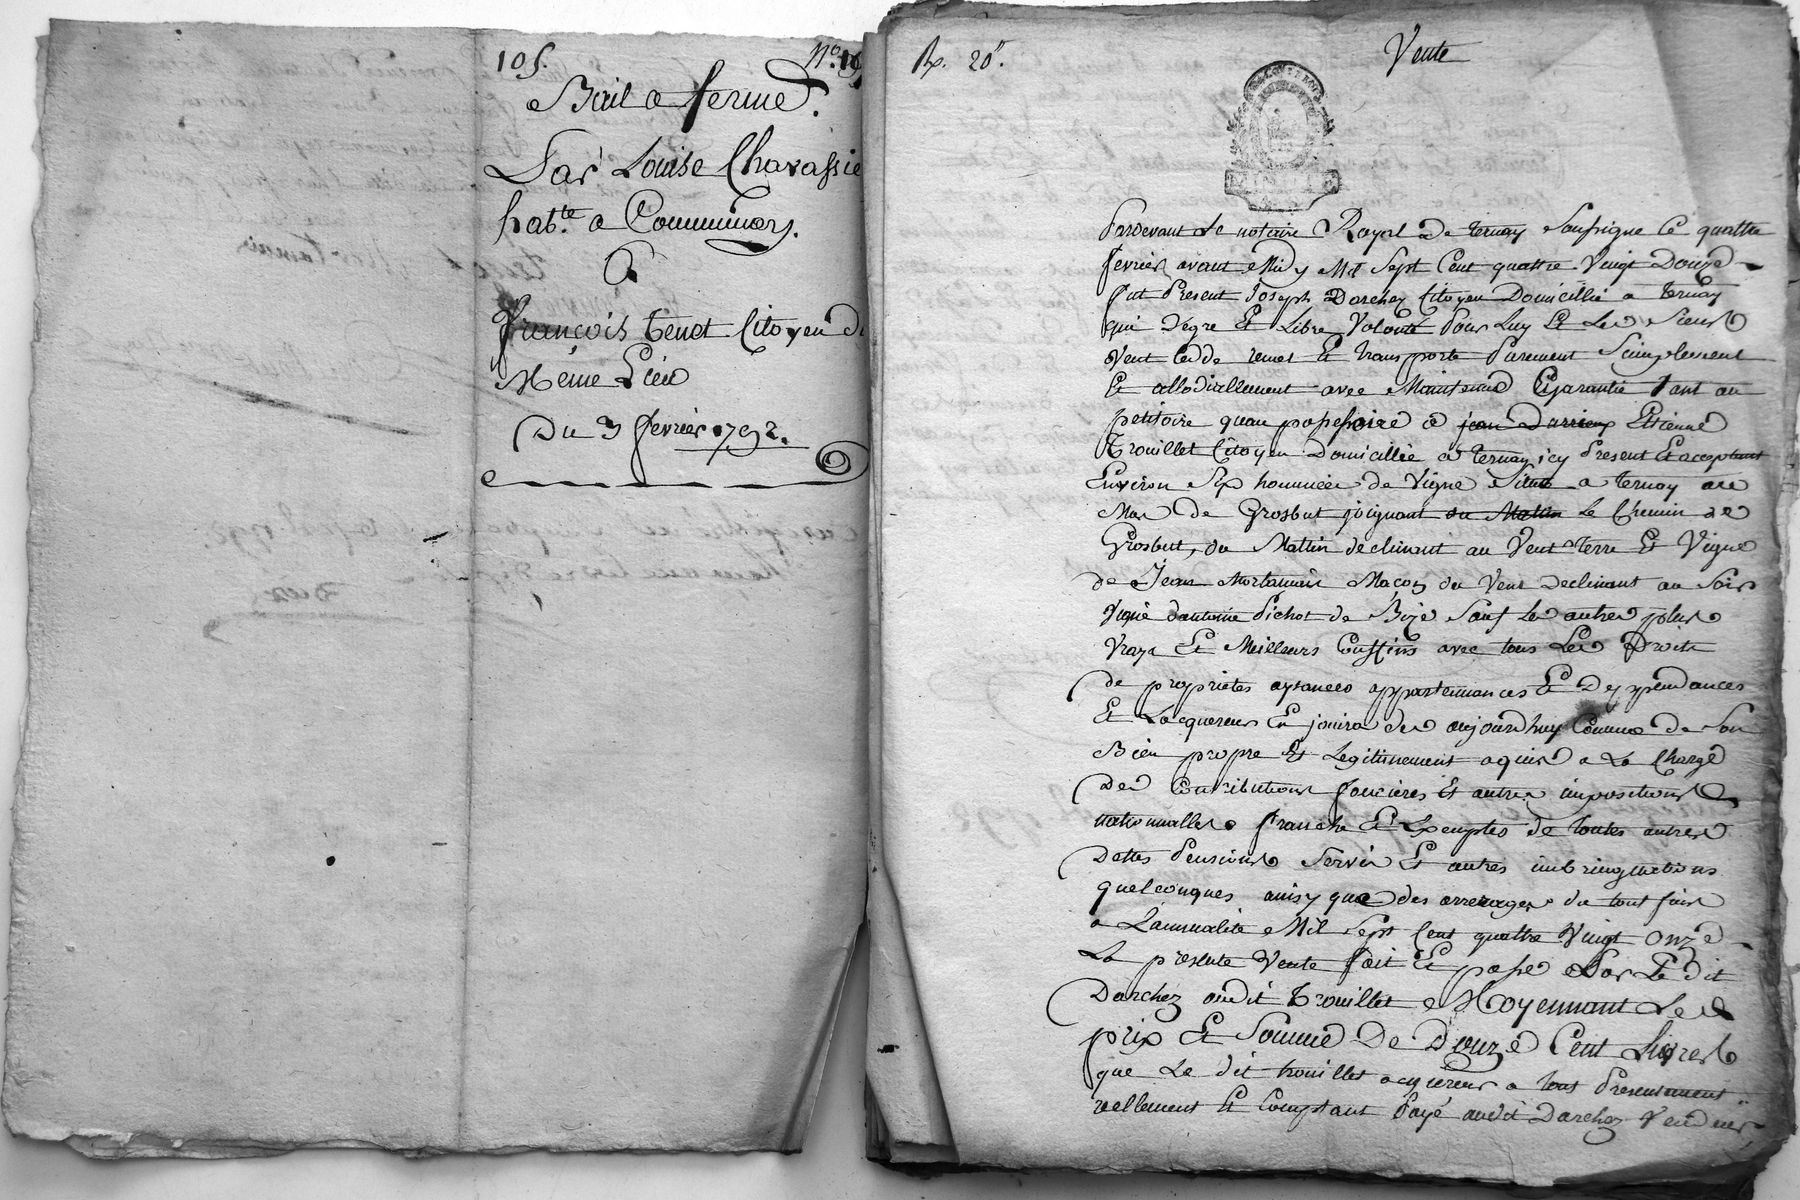 105. N°. 19
Bail a ferme.
Par Louise Chavassie
habte. a Communay.
A
François Tenet Citoyen du
Même Lieu
Du 3 fevrier 1792.
Rx. 20s.
Vente
Pardevant Le notaire Royal De ternay Soussigne Ce quattre
fevrier avant Midy Mil Sept Cent quattre Vingt Douze
fut Present Joseph Darchez Citoyen Domicillié a ternay
qui Degré Et Libre Volonté Pour Luy Et Les Siens
Vent Cedde remet Et transporte Purement Simplement
Et allodiallement avec Maintenue Garantie tant au
petitoire quau possessoire a jean Darrieux Etienne
Trouillet Citoyen Domicillié a ternay icy Present Et acceptant
Environ Six hommées de Vigne Situé a ternay au
Mas de Grosbut joignant du Mattin Le Chemin de
Grosbut, du Mattin declinant au Vent terre Et Vigne
de Jean Mortamais Maçon du Vent Declinant au Soir
Vigne dantoine Pichot de Soir Sauf Les autres plus
Vrays Et Meilleurs Confins avec tous Les Droits
de proprietés aysances appartenances Et Deppendances
Et Lacquereur En jouira des aujourdhuy Comme de Son
Bien propre Et Legitimement aquis a La Charge
Des Contributions foncieres Et autres impositions
nationnalles franche Et Exemptes de toutes autres
Dettes Pensions Servis Et autres imbringuations
quelconques ainsy que des arrerages du tout fini
a Lannualité Mil Sept Cent quattre Vingt Onze
La presente Vente fait Et passé Par Le dit
Darchez audit Trouillet Moyennant Le
prix Et Somme De Douze Cent Livres
que Le dit trouillet acquereur a tout Presentement
reellement Et Comptant Payé audit Darchez Vendeur